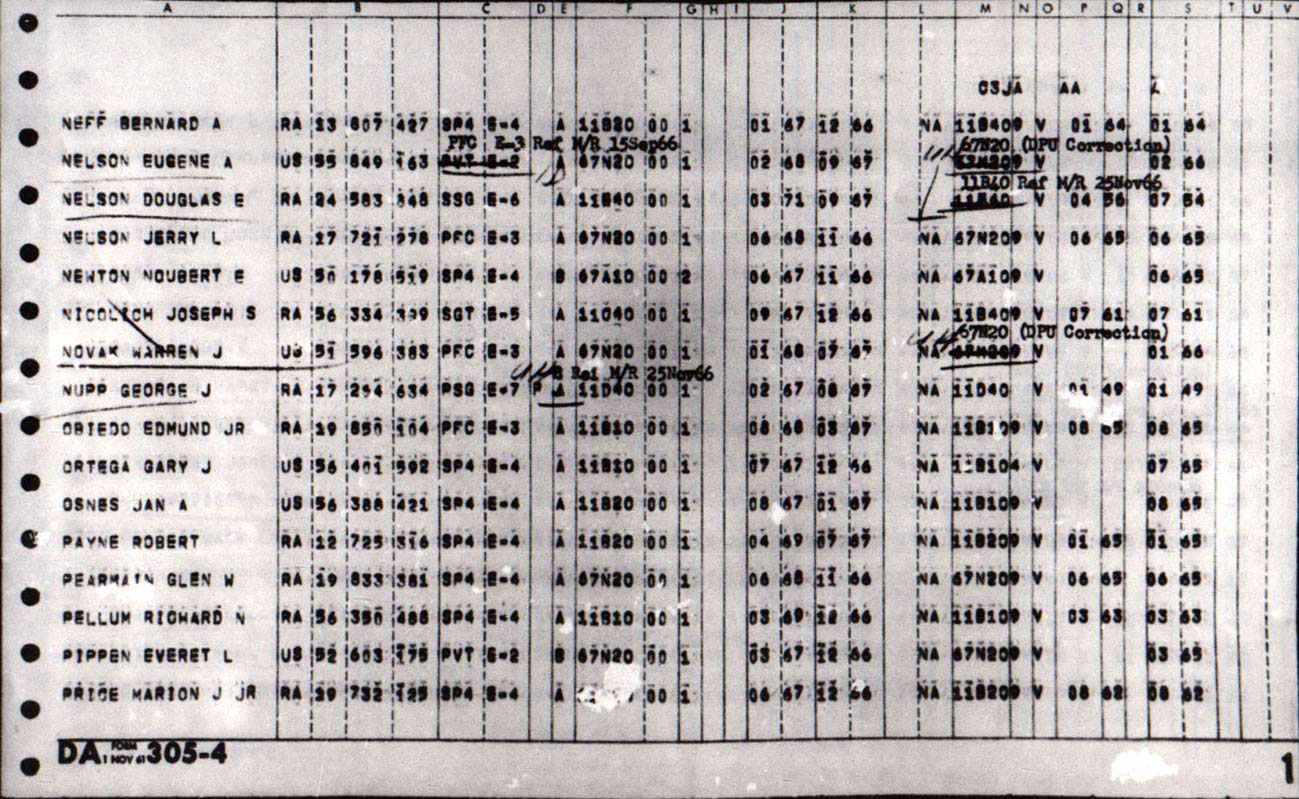 A B C D E F G H I J K L M N O P Q R S T U V
C3JA AA
NEFF BERNARD A RA 13 607 427 SP4 E-4 A 11B20 00 1 01 67 12 66 NA 11B409 V 01 64 01 64
PFC E-3 Ref M/R 15Sep66 67N20 (DPU Correction)
NELSON EUGENE A US 55 849 163 PVT E-2 A 67N20 00 1 02 68 09 67 V 02 66
11B40 Ref M/R 25Nov66
NELSON DOUGLAS E RA 24 583 848 SSG E-6 A 11B40 00 1 03 71 09 67 11B40 V 04 56 07 54
NELSON JERRY L RA 17 721 278 PFC E-3 A 67N20 00 1 06 68 11 66 NA 67N209 V 06 65 06 65
NEWTON NOUBERT E US 50 178 519 SP4 E-4 B 67A10 00 2 06 67 11 66 NA 67A109 V 06 65
NICOLICH JOSEPH S RA 56 334 399 SGT E-5 A 11D40 00 1 09 67 12 66 NA 11B409 V 07 61 07 61
67N20 (DPU Correction)
NOVAK WARREN J US 51 596 383 PFC E-3 A 67N20 00 1 01 68 07 67 NA V 01 66
B Ref M/R 25Nov66
NUPP GEORGE J RA 17 254 634 PSG E-7 P A 11D40 00 1 02 67 08 67 NA 11D40 V 01 49 01 49
OBIEDO EDMUND JR RA 19 850 104 PFC E-3 A 11B10 00 1 08 68 03 67 NA 11B109 V 08 65 08 65
ORTEGA GARY J US 56 401 592 SP4 E-4 A 11B10 00 1 07 67 12 66 NA 11B104 V 07 65
OSNES JAN A US 56 388 421 SP4 E-4 A 11B20 00 1 08 67 01 67 NA 11B109 V 08 65
PAYNE ROBERT RA 12 725 316 SP4 E-4 A 11B20 00 1 04 69 07 67 NA 11B209 V 01 65 01 65
PEARMAIN GLEN W RA 19 833 381 SP4 E-4 A 67N20 00 1 06 68 11 66 NA 67N209 V 06 65 06 65
PELLUM RICHARD N RA 56 350 488 SP4 E-4 A 11B10 00 1 03 69 12 66 NA 11B109 V 03 63 03 63
PIPPEN EVERET L US 52 603 175 PVT E-2 B 67N20 00 1 03 67 12 66 NA 67N209 V 03 65
PRICE MARION J JR RA 19 732 125 SP4 E-4 A 00 1 06 67 12 66 NA 11B209 V 08 62 08 62
DA FORM 1 NOV 61 305-4
1